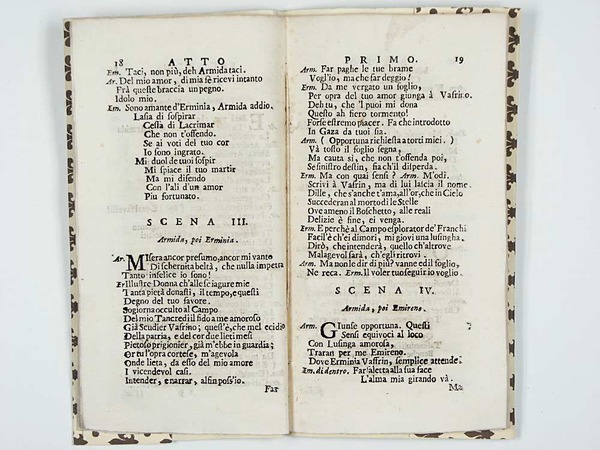 18 ATTO
Em. Taci, non più, deh Armida taci.
Ar. Del mio amor, di mia fè ricevi intanto
Frà queste braccia un pegno.
Idolo mio.
Em. Sono amante d'Erminia, Armida addio.
Lasia di sospirar
Cessa di Lacrimar
Che non t'offendo.
Se ai voti del tuo cor
Io sono ingrato.
Mi duol de tuoi sospir
Mi spiace il tuo martir
Ma mi difendo
Con l'ali d'un amor
Piu fortunato.
SCENA III.
Armida, poi Erminia.
Ar. Misera ancor presumo, ancor mi vanto
Di schernita beltà, che nulla impetra
Tanto infelice io sono!
Er Illustre Donna ch'alle sciagure mie
Tanta pietà donasti, il tempo, e questi
Degno del tuo favore.
Sogiorna occulto al Campo
Del mio Tancredi il fido a me amoroso
Già Scudier Vafrino; quest'è, che nel ecidio
Della patria, e del cor due lieti mesi
Pietoso prigionier, già m'ebbe in guardia;
Or tu l'opra cortese, m'agevola
Onde lieta, da esso del mio amore
I vicendevol casi.
Intender, e narrar, alfin poss'io.
Far
PRIMO. 19
Arm. Far paghe le tue brame
Vogl'io, ma che far deggio!
Erm. Da me vergato un foglio,
Per opra del tuo amor giunga à Vafrino.
Deh tu, che 'l puoi mi dona
Questo ah fiero tormento!
Forse estremo piacer. Fa che introdotto
In Gaza da tuoi sia.
Arm. ( Opportuna richiesta a torti miei. )
Và tosto il foglio segna,
Ma cauta si, che non t'offenda poi,
Se sinistro destin, sia ch'il disperda.
Erm. Ma con quai sensi? Arm. M'odi.
Scrivi à Vafrin, ma di lui lascia il nome.
Dille, che s'anche t'ama, allor, che in Cielo
Succederan al morto dì le Stelle
Ove ameno il Boschetto, alle reali
Delizie è fine, ei venga.
Erm. E perchè al Campo esplorator de' Franchi
Facil'è ch'ei dimori, mi giovi una lusingha.
Dirò, che intenderà, quello ch'altrove
Malagevol sarà, ch'egli ritrovi.
Arm. Ma non le dir di più? vanne ed il foglio,
Ne reca. Erm. Il voler tuo seguir io voglio.
SCENA IV.
Armida, poi Emireno.
Arm. Giunse opportuna. Questi
Sensi equivoci al loco
Con Lusinga amorosa,
Traran per me Emireno.
Dove Erminia Vaffrin, semplice attende.
Em. di dentro. Farfaletta alla sua face
L'alma mia girando và.
Ma